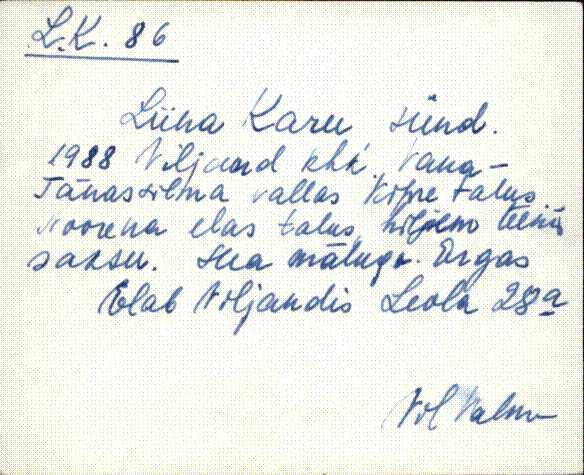 L.K. 86
Liina Karu sünd.
1988 Viljand khk. Vana-
Tänassilma vallas Kõpre talus
Noorena elas talus, hiljem teenis
saksu. Hea mäluga. Ergas
Elab Viljandis Leola 28a